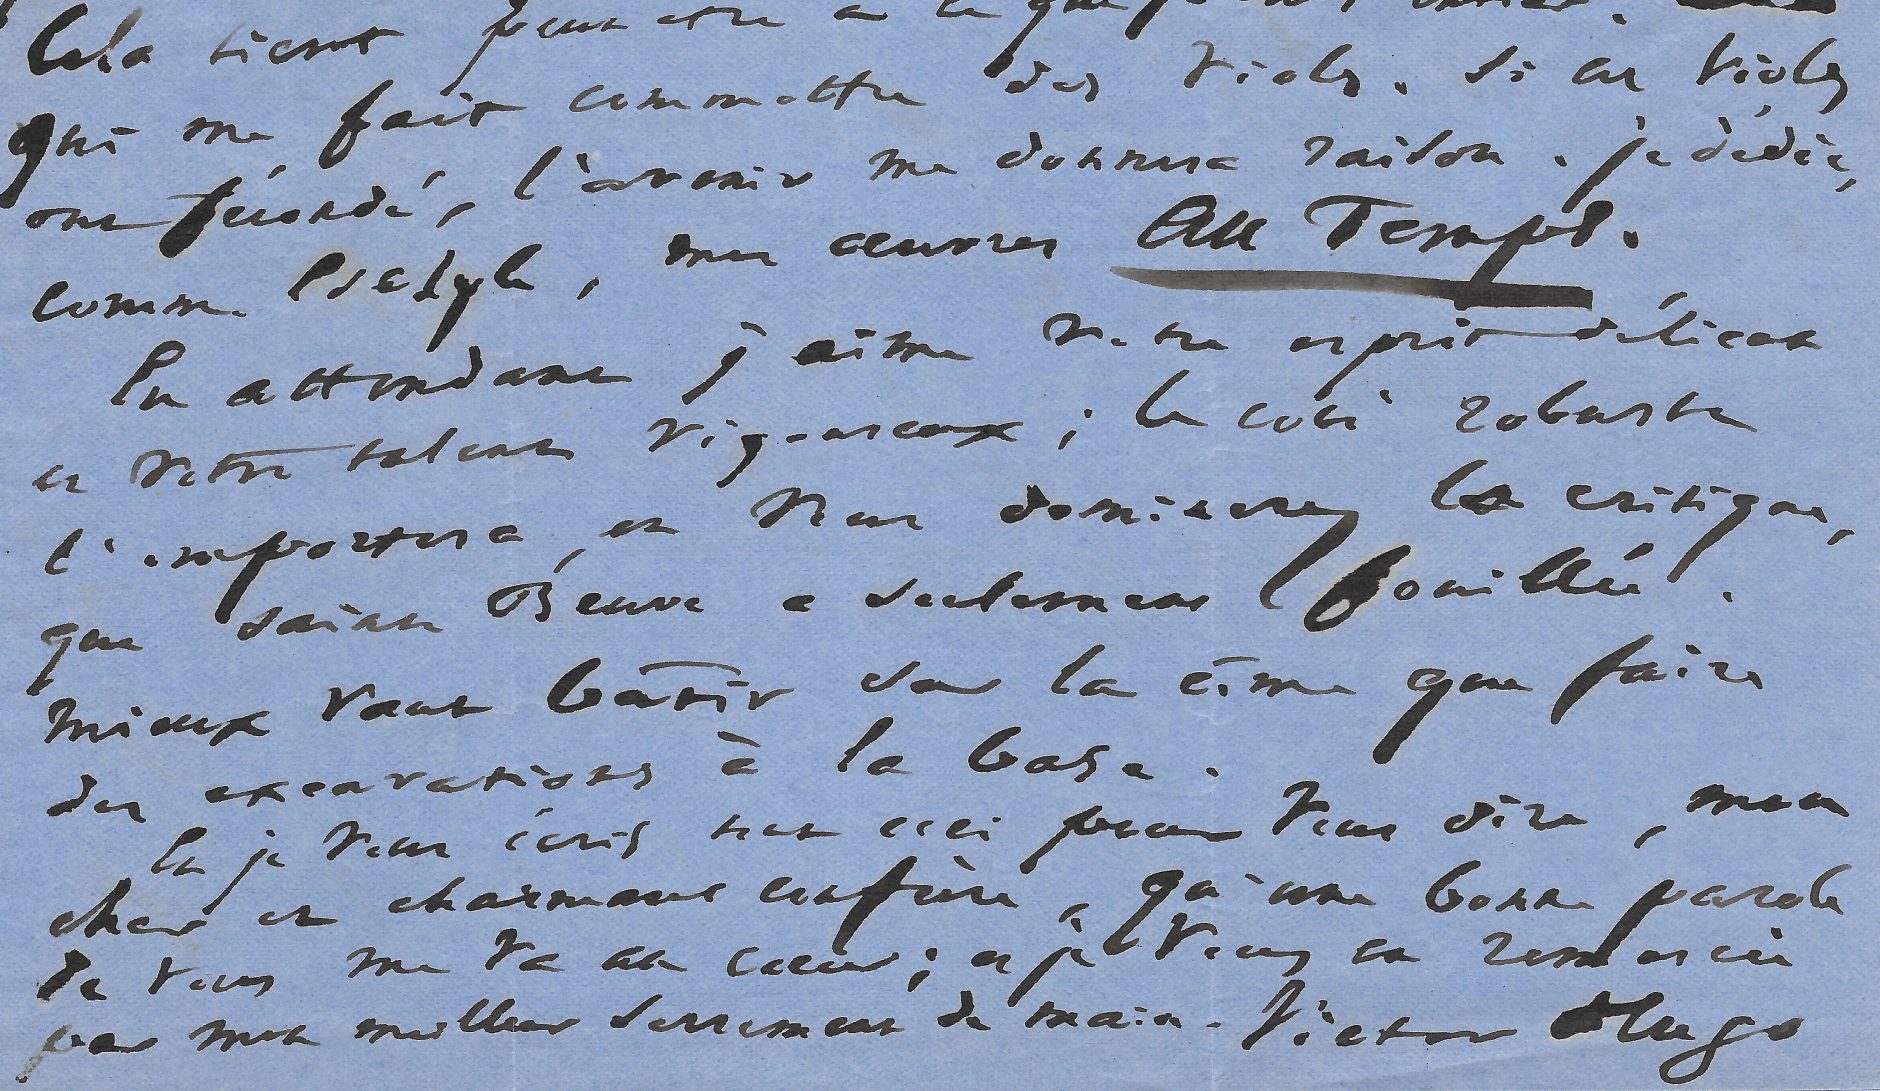 Cela tient peut être à ce que je
qui me fait commettre des viols. Si ces viols
ont fécondé, l'avenir me donnera raison. je dédie,
comme Eschyle, mes œuvres Au Temps.
En attendant j'aime votre esprit délicat
et votre talent vigoureux ; le côté robuste
l'emportera, et vous dominerez la critique,
que Sainte Beuve a seulement fouillée.
Mieux vaut bâtir sur la cime que faire
des excavations à la base.
Et je vous écris tout ceci pour vous dire, mon
cher et charmant confrère, qu'une bonne parole
de vous me va au cœur ; et je vous en remercie
par mon meilleur serrement de main. Victor Hugo